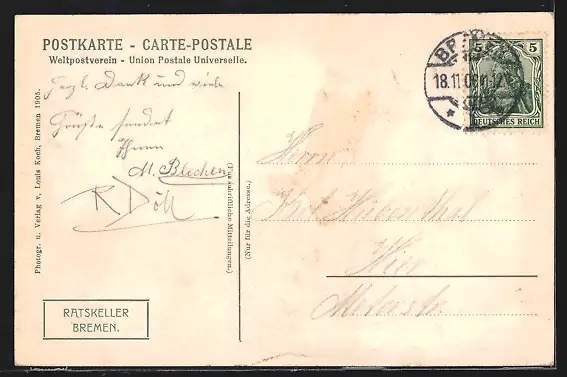 POSTKARTE - CARTE-POSTALE
Weltpostverein - Union Postale Universelle.
Herzl. Dank und viele
Grüße sendet
Ihnen
M. Blechen
R Döll
Photogr. u. Verlag v. Louis Koch, Bremen 1905.
(Für schriftliche Mitteilungen.)
(Nur für die Adresse.)
RATSKELLER
BREMEN.
5 5
DEUTSCHES REICH
18.11.
Herrn
Hier